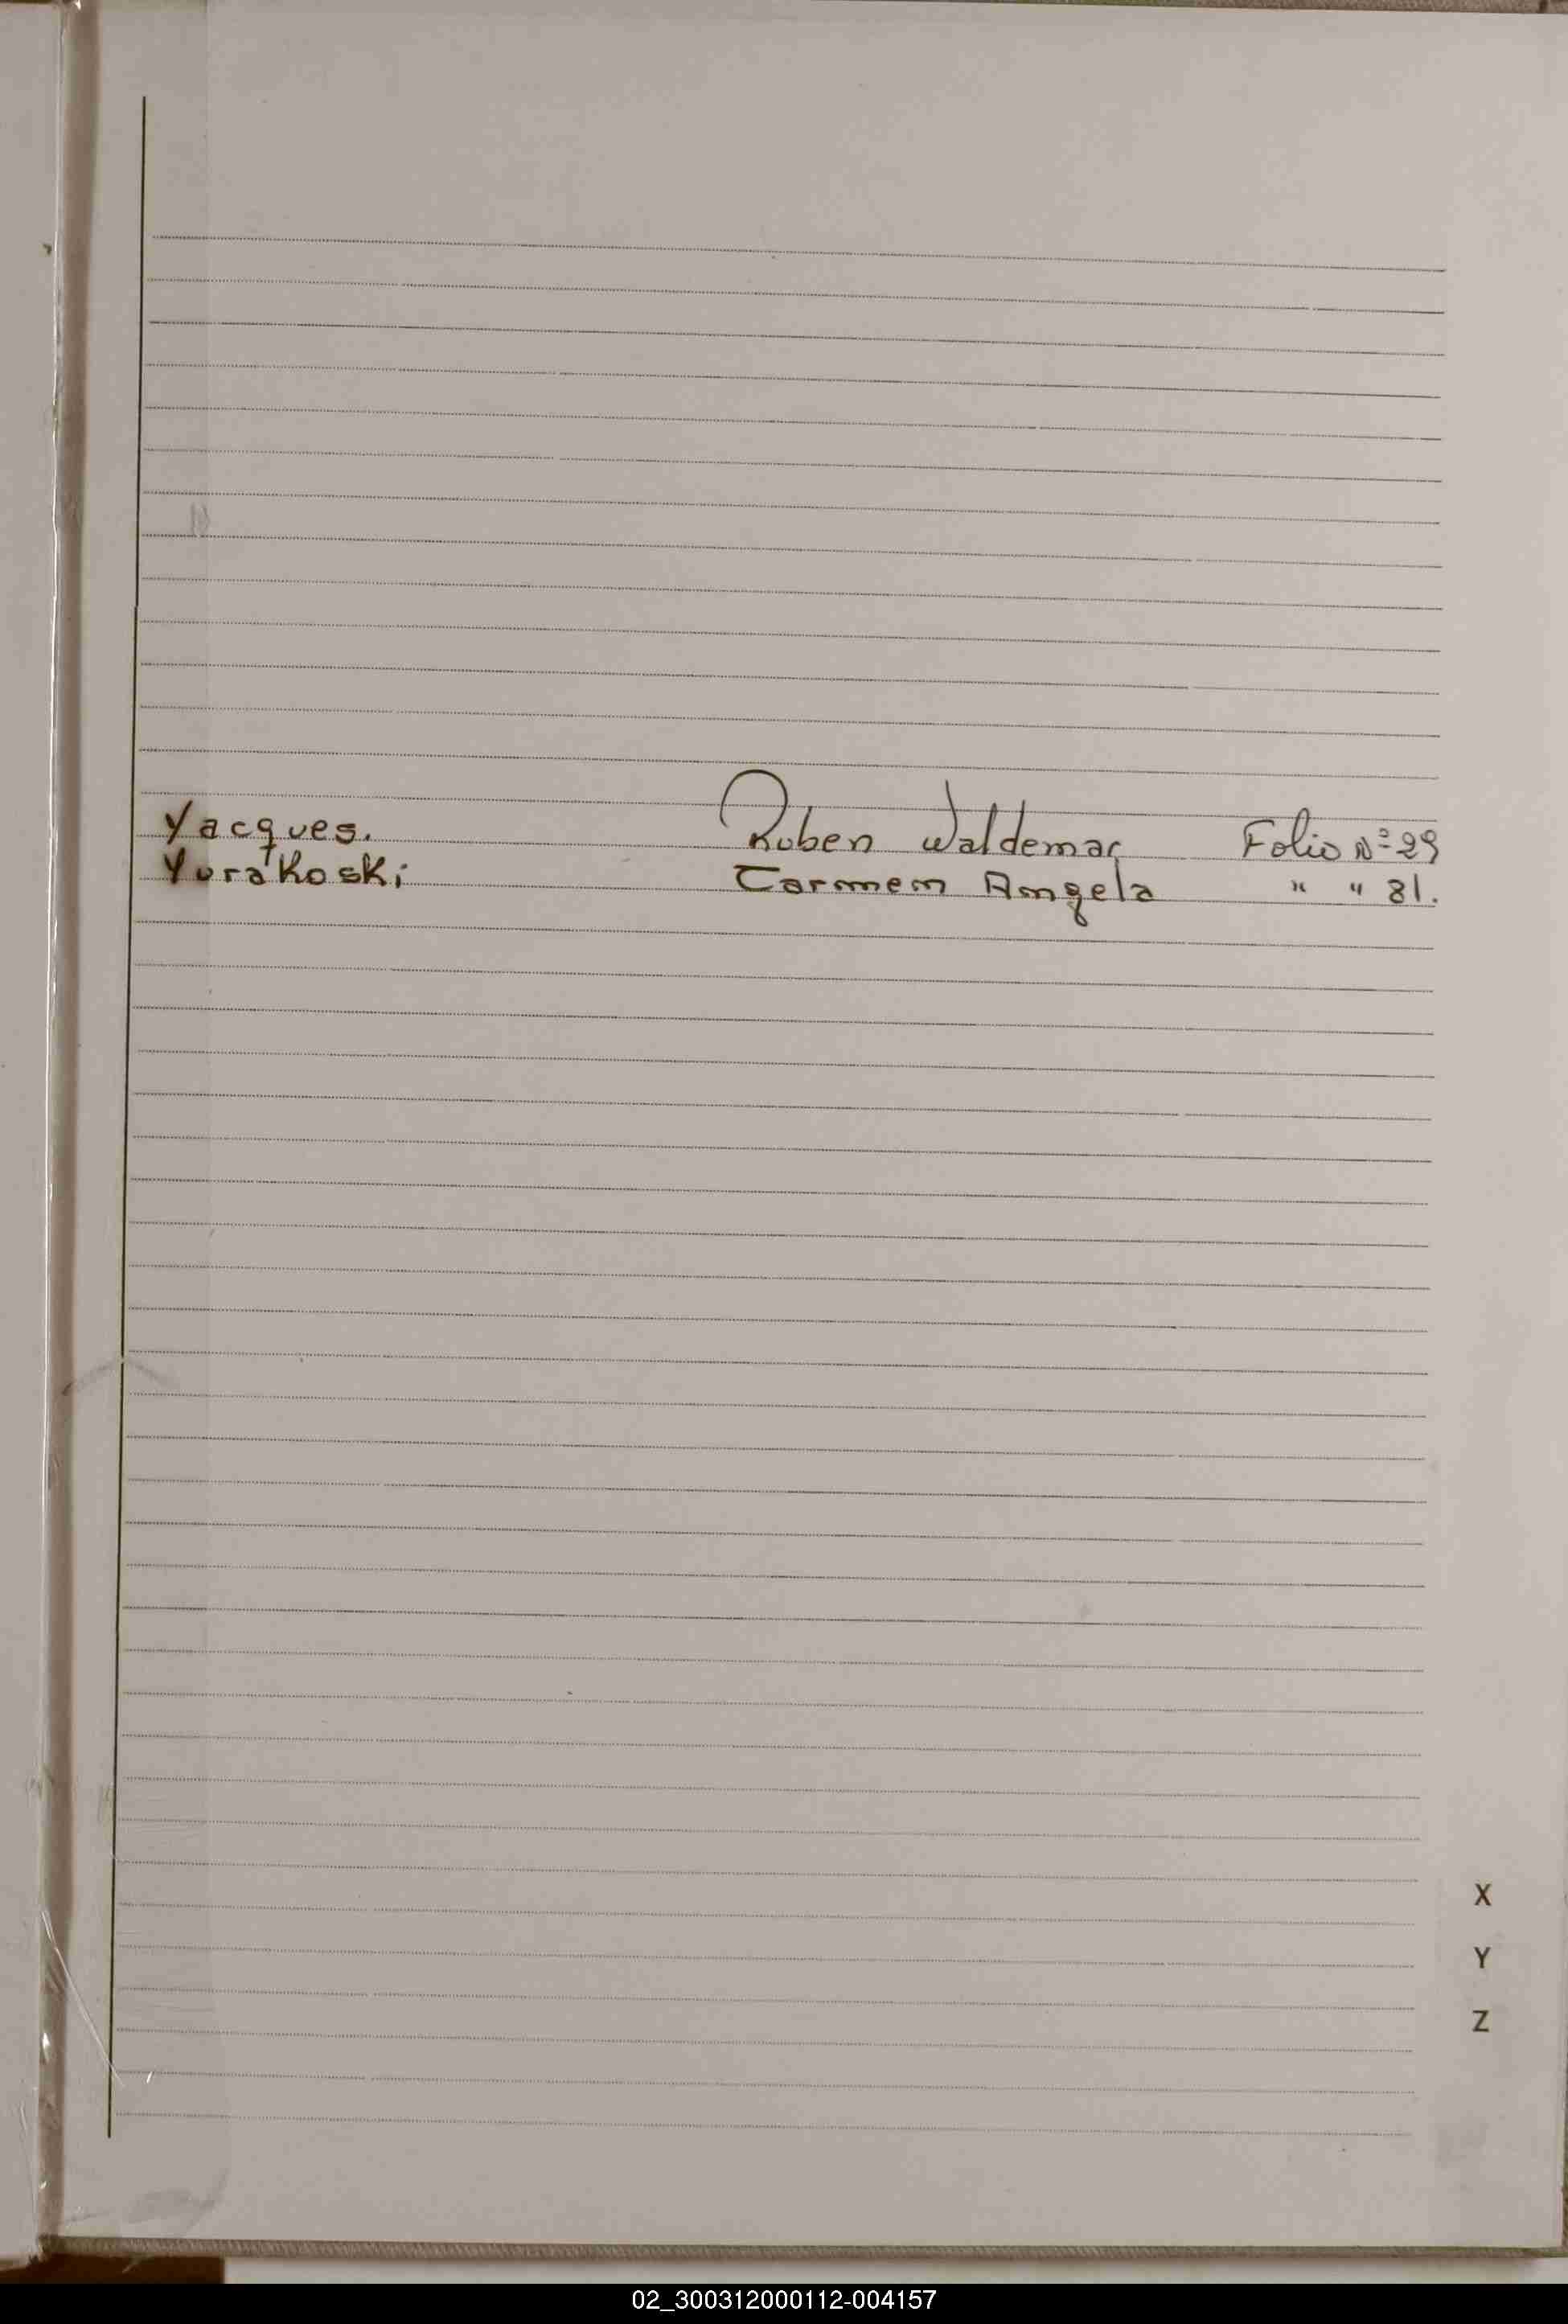 Yacques. Ruben Waldemar Folio Nº 29
Yurakoski Carmem Angela " " 81.
X
Y
Z
02_300312000112-004157